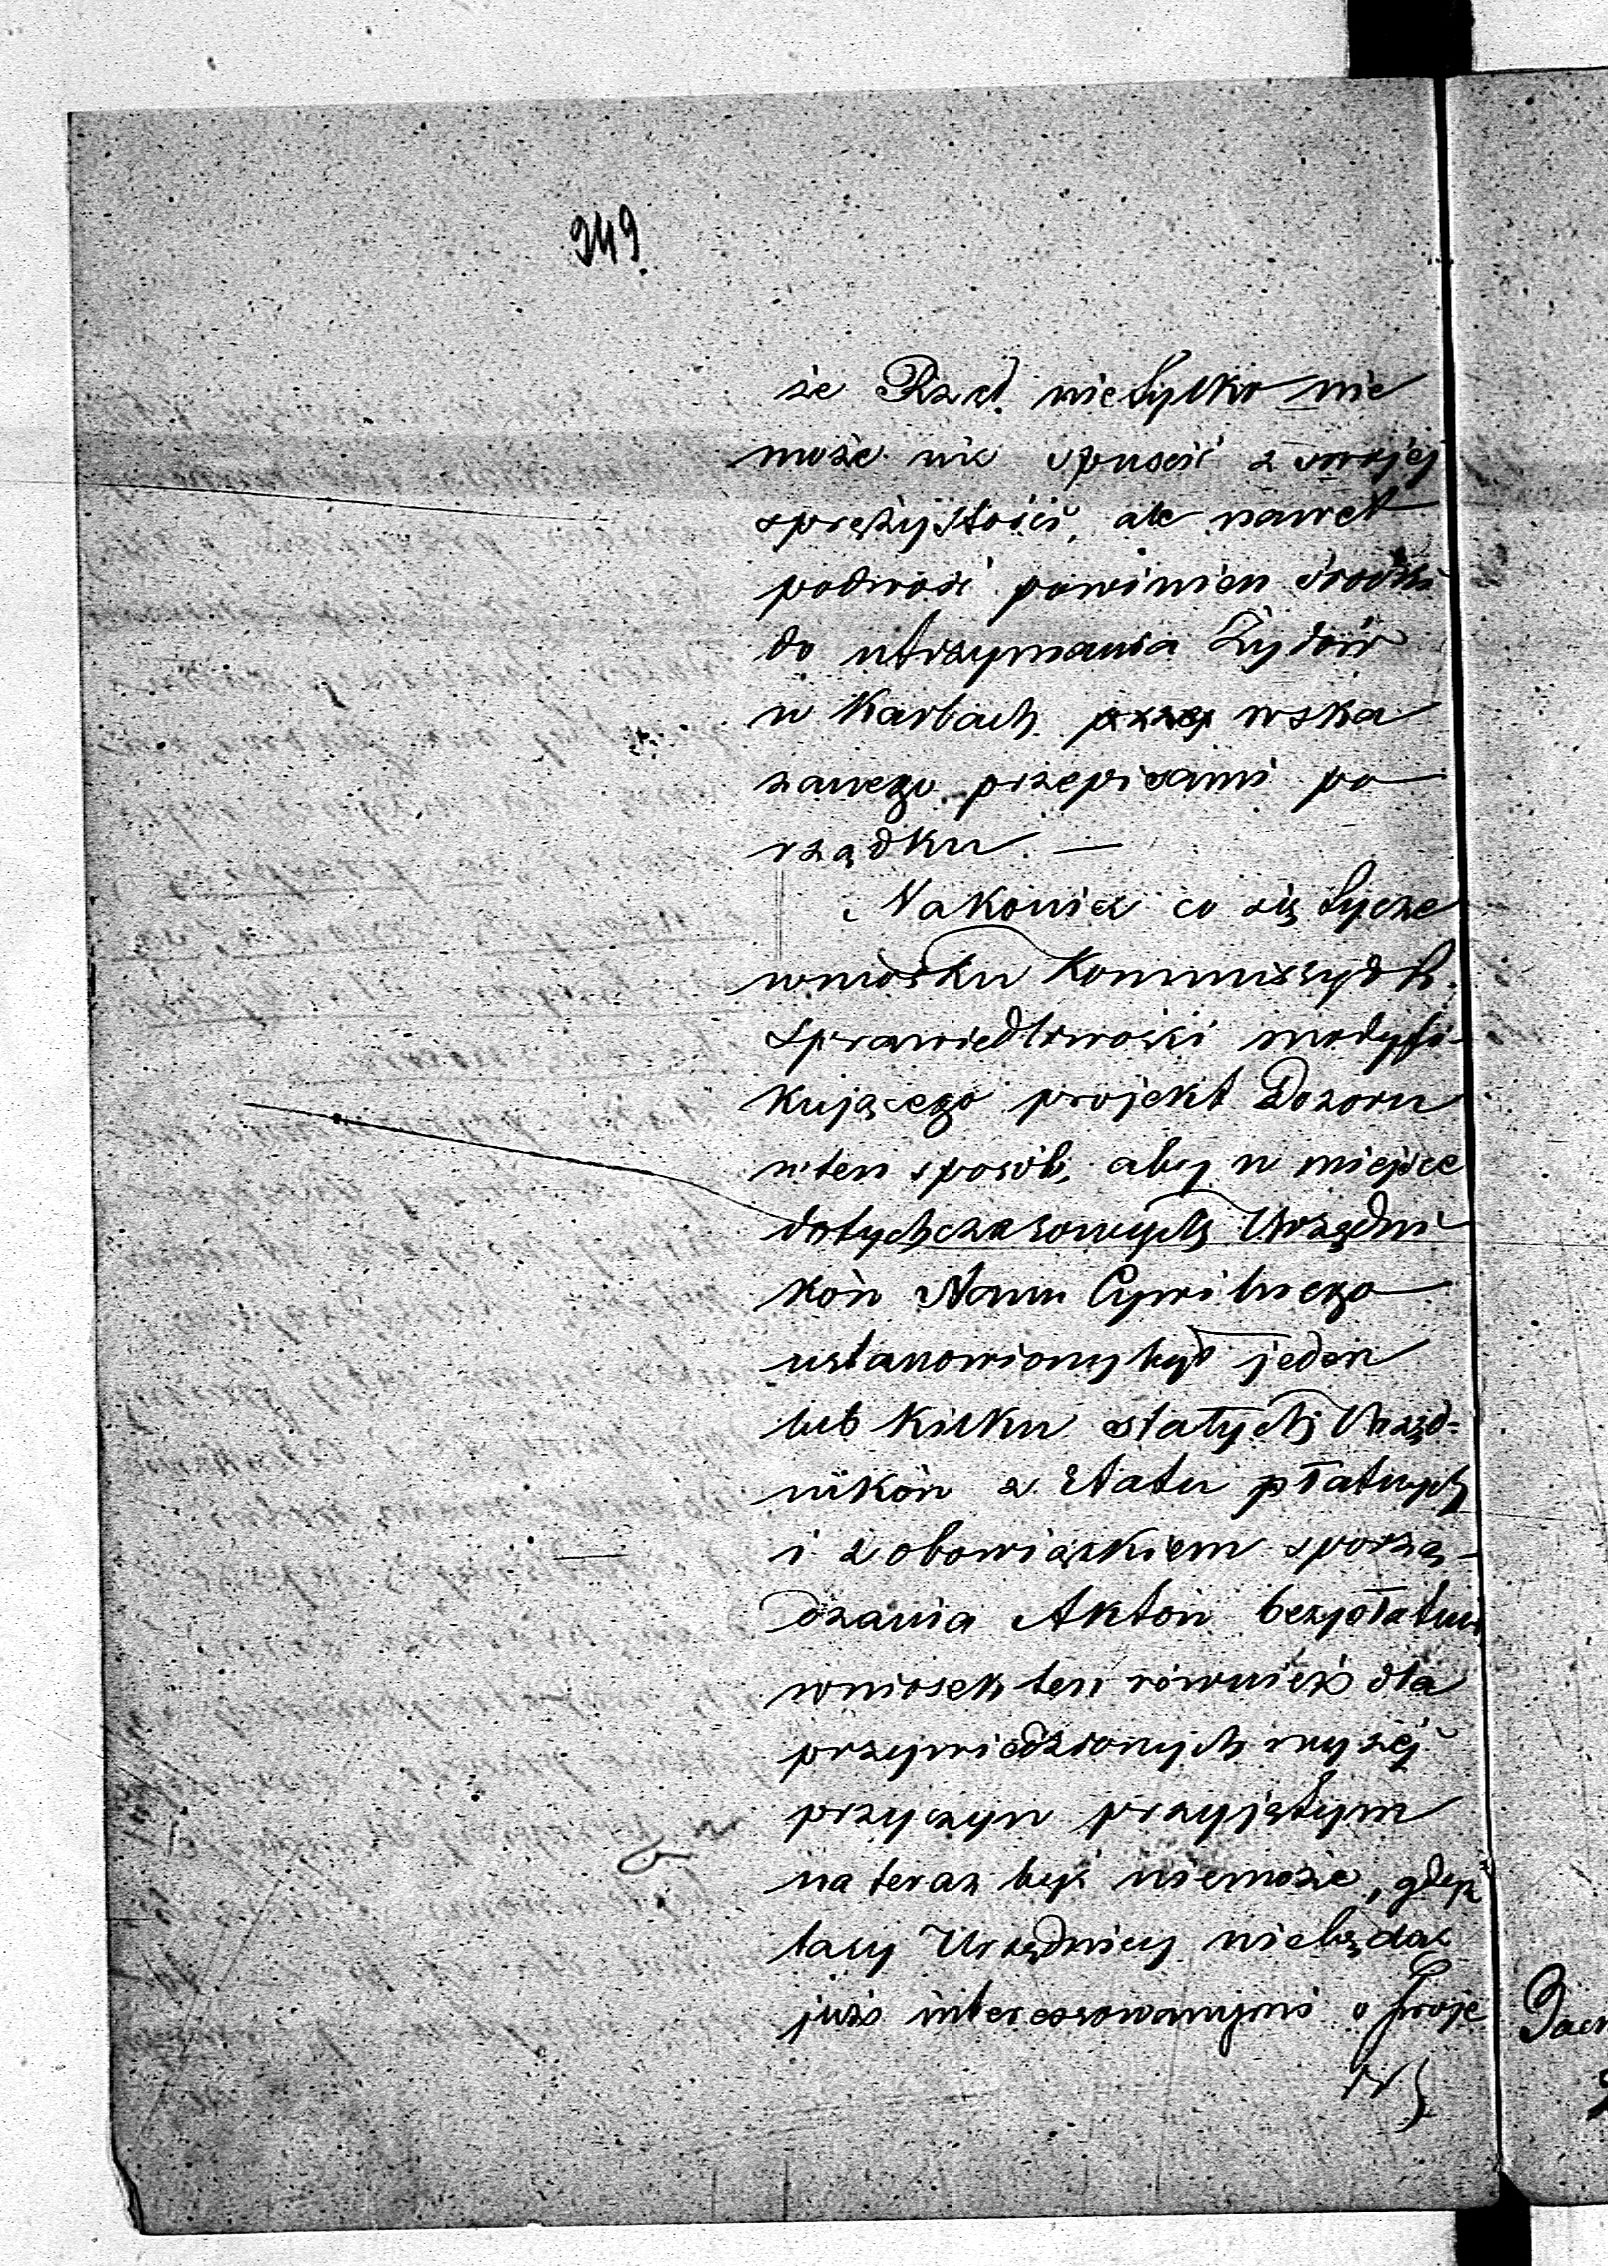 249.
że Rząd nietylko nie
może nic opuścić z swojej
sprężystości, ale nawet
podwoić powinien środki
do utrzymania Żydów
w Karbach wska
zanego przepisami po
rządku. —
Nakoniec co się tycze
wniosku Kommissyi R.
Sprawiedliwości modyfi-
kującego projekt Dozoru
w ten sposób, aby w miejsce
dotychczasowych Urzędni
ków Stanu Cywilnego
ustanowiony był jeden
lub kilku stałych Urzęd-
ników z Etatu płatnych
i z obowiązkiem sporzą-
dzania Aktów bezpłatnie
wniosek ten również dla
przywiedzionych wyżej
przyczyn przyjętym
na teraz być niemoże, gdyż
tacy Urzędnicy niebędąc
już interessowanymi o swoje